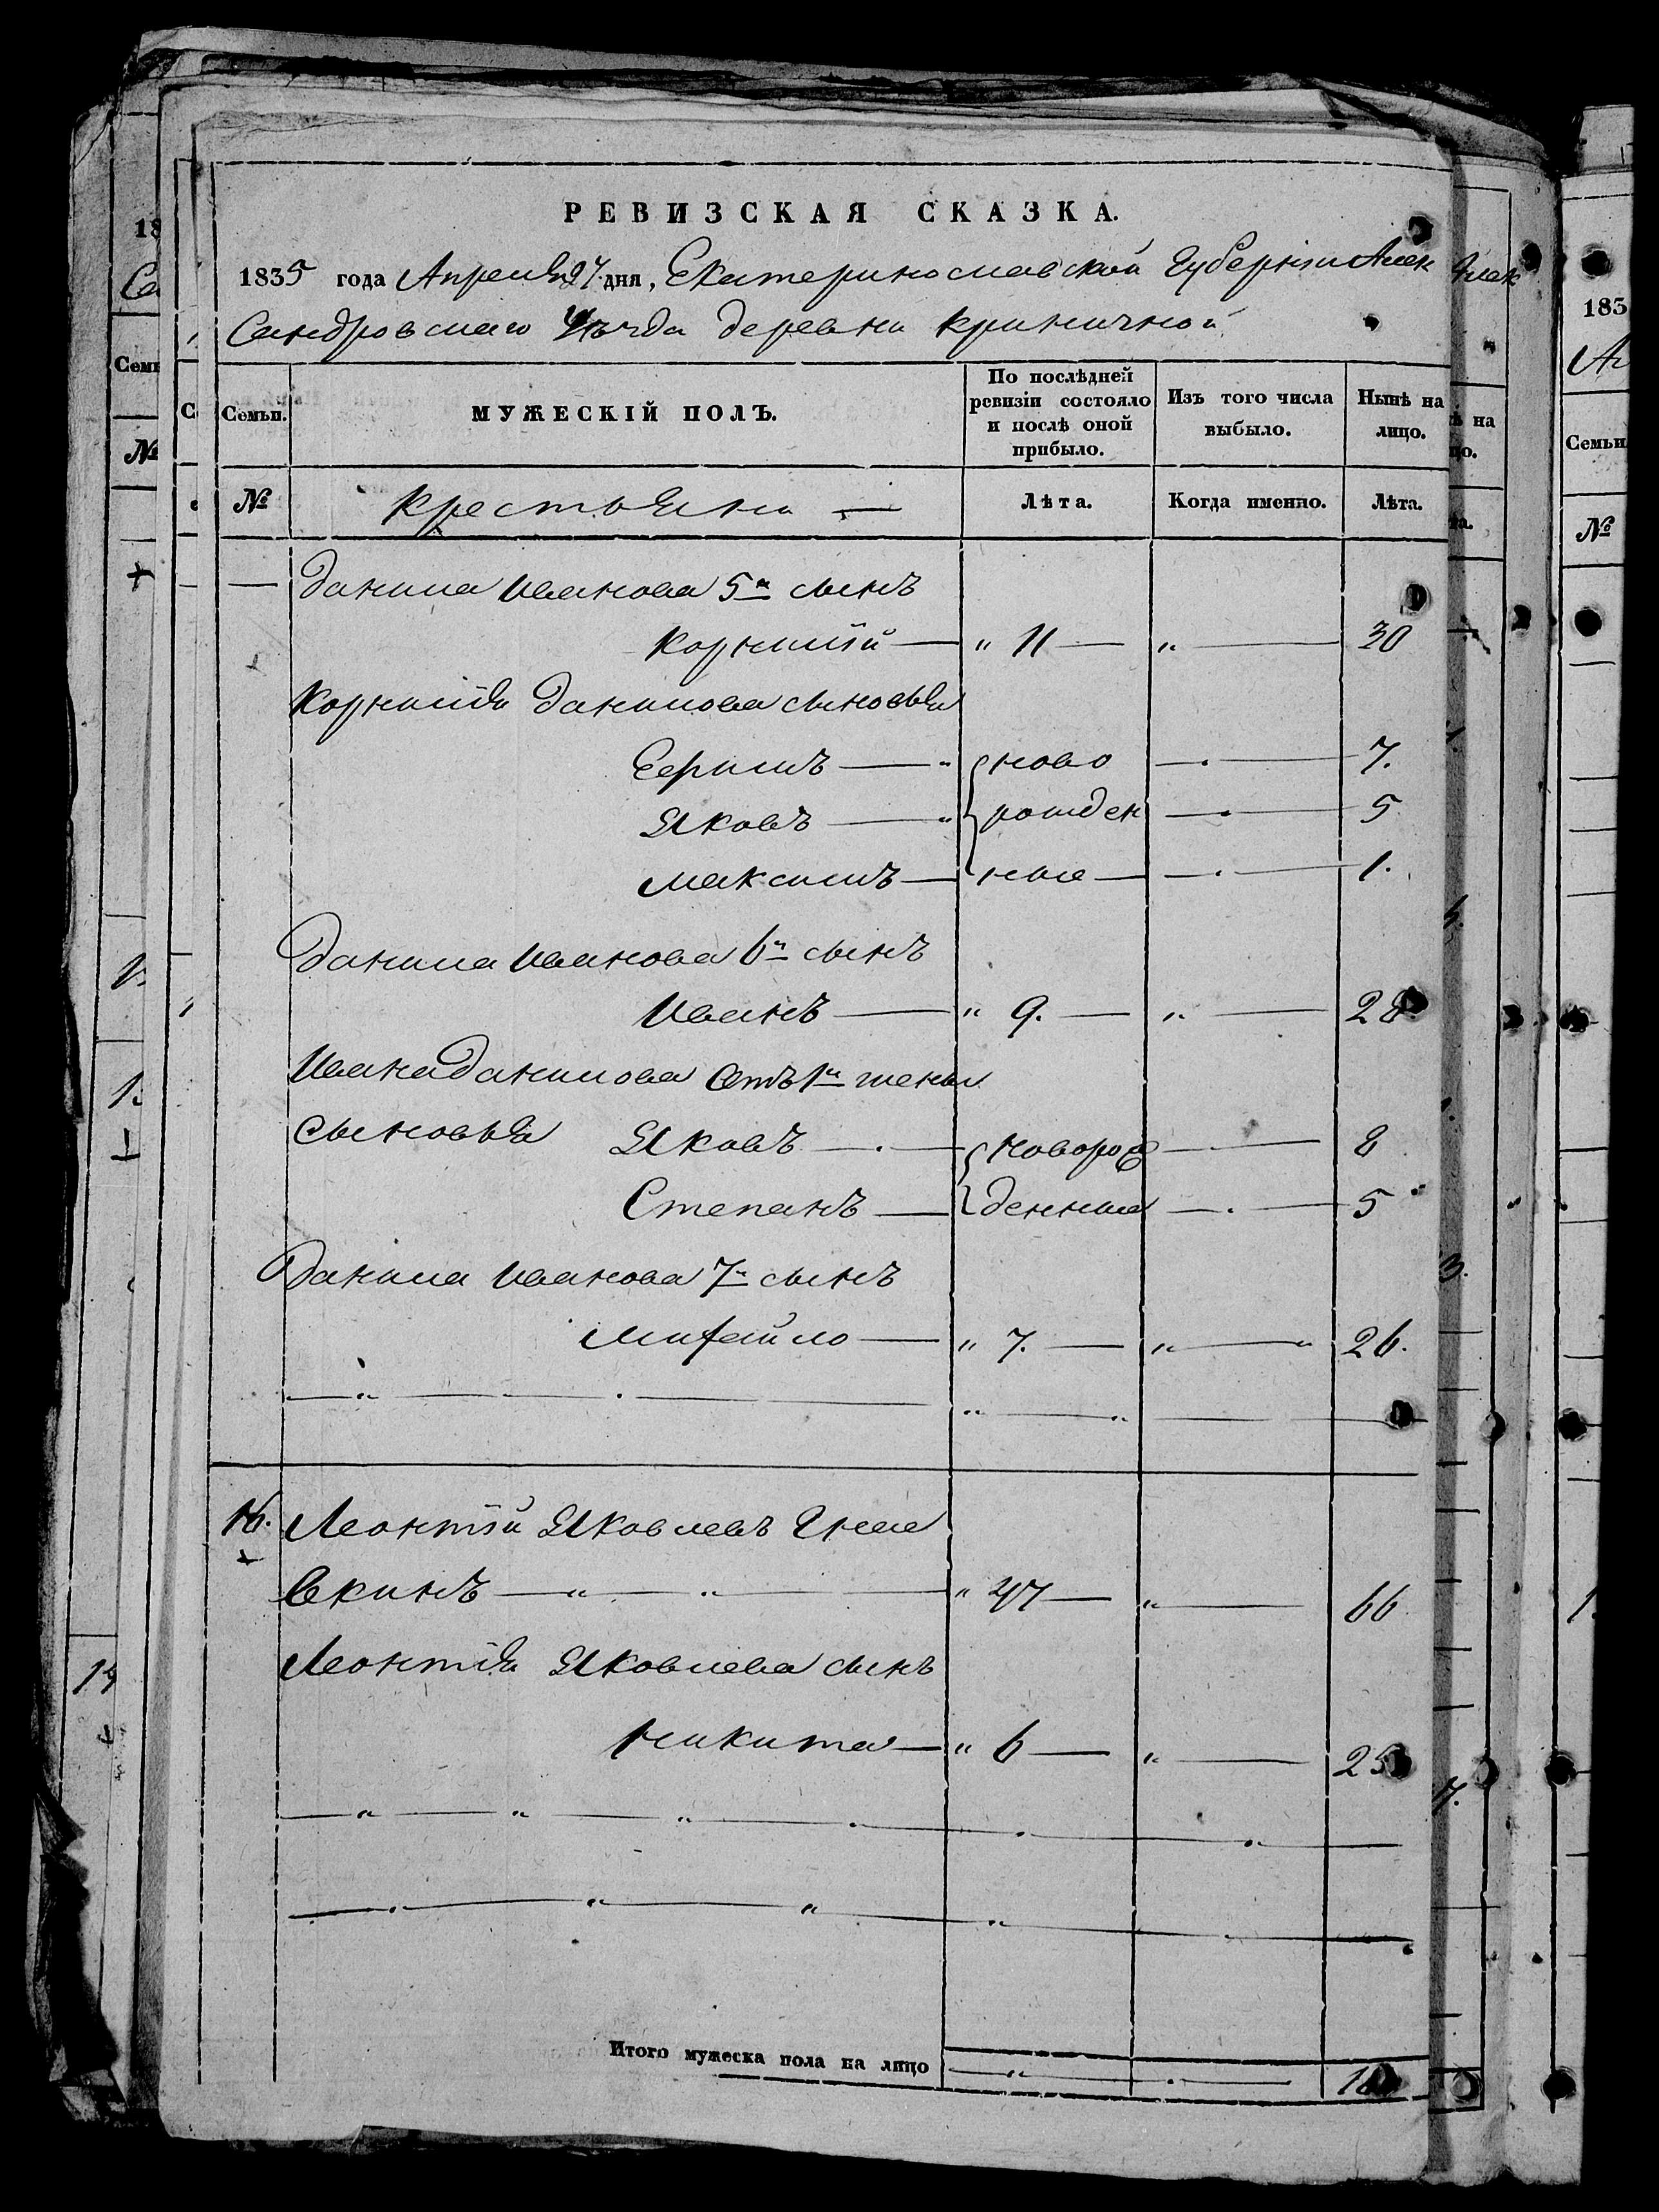 РЕВИЗСКАЯ СКАЗКА.
1835 года Апреля 27 дня, Екатеринославской Губернии Алек
Сандровскаго Уъзда деревни криничной
Семьи. МУЖЕСКІЙ ПОЛЪ. По послѣдней ревизіи состояло и послѣ оной прибыло. Изъ того числа выбыло. Нынѣ на лицо.
№ крестьяни — Лѣта. Когда именно. Лѣта.
— Данила Иванова 5й сынъ
Корнилій — " 11 — " — 30
Корнилія Данилова сыновья
Ефимъ — ново — 7.
Яковъ — рожден — 5
Максимъ — ные — 1.
Данила Иванова 6й сынъ
Иванъ — " 9. — " — 28
Ивана Данилова Отъ 1й жены
Сыновья Яковъ — новорож — 8
Степанъ — денные — 5
Данила Иванова 7й сынъ
Михайло — " 7. — " — 26.
16. Леонтій Яковлевъ
" 47 — " — 66
Леонтія Яковлева сынъ
Никита — " 6 — " — 25
Итого мужеска пола на лицо
183
Семьи
№